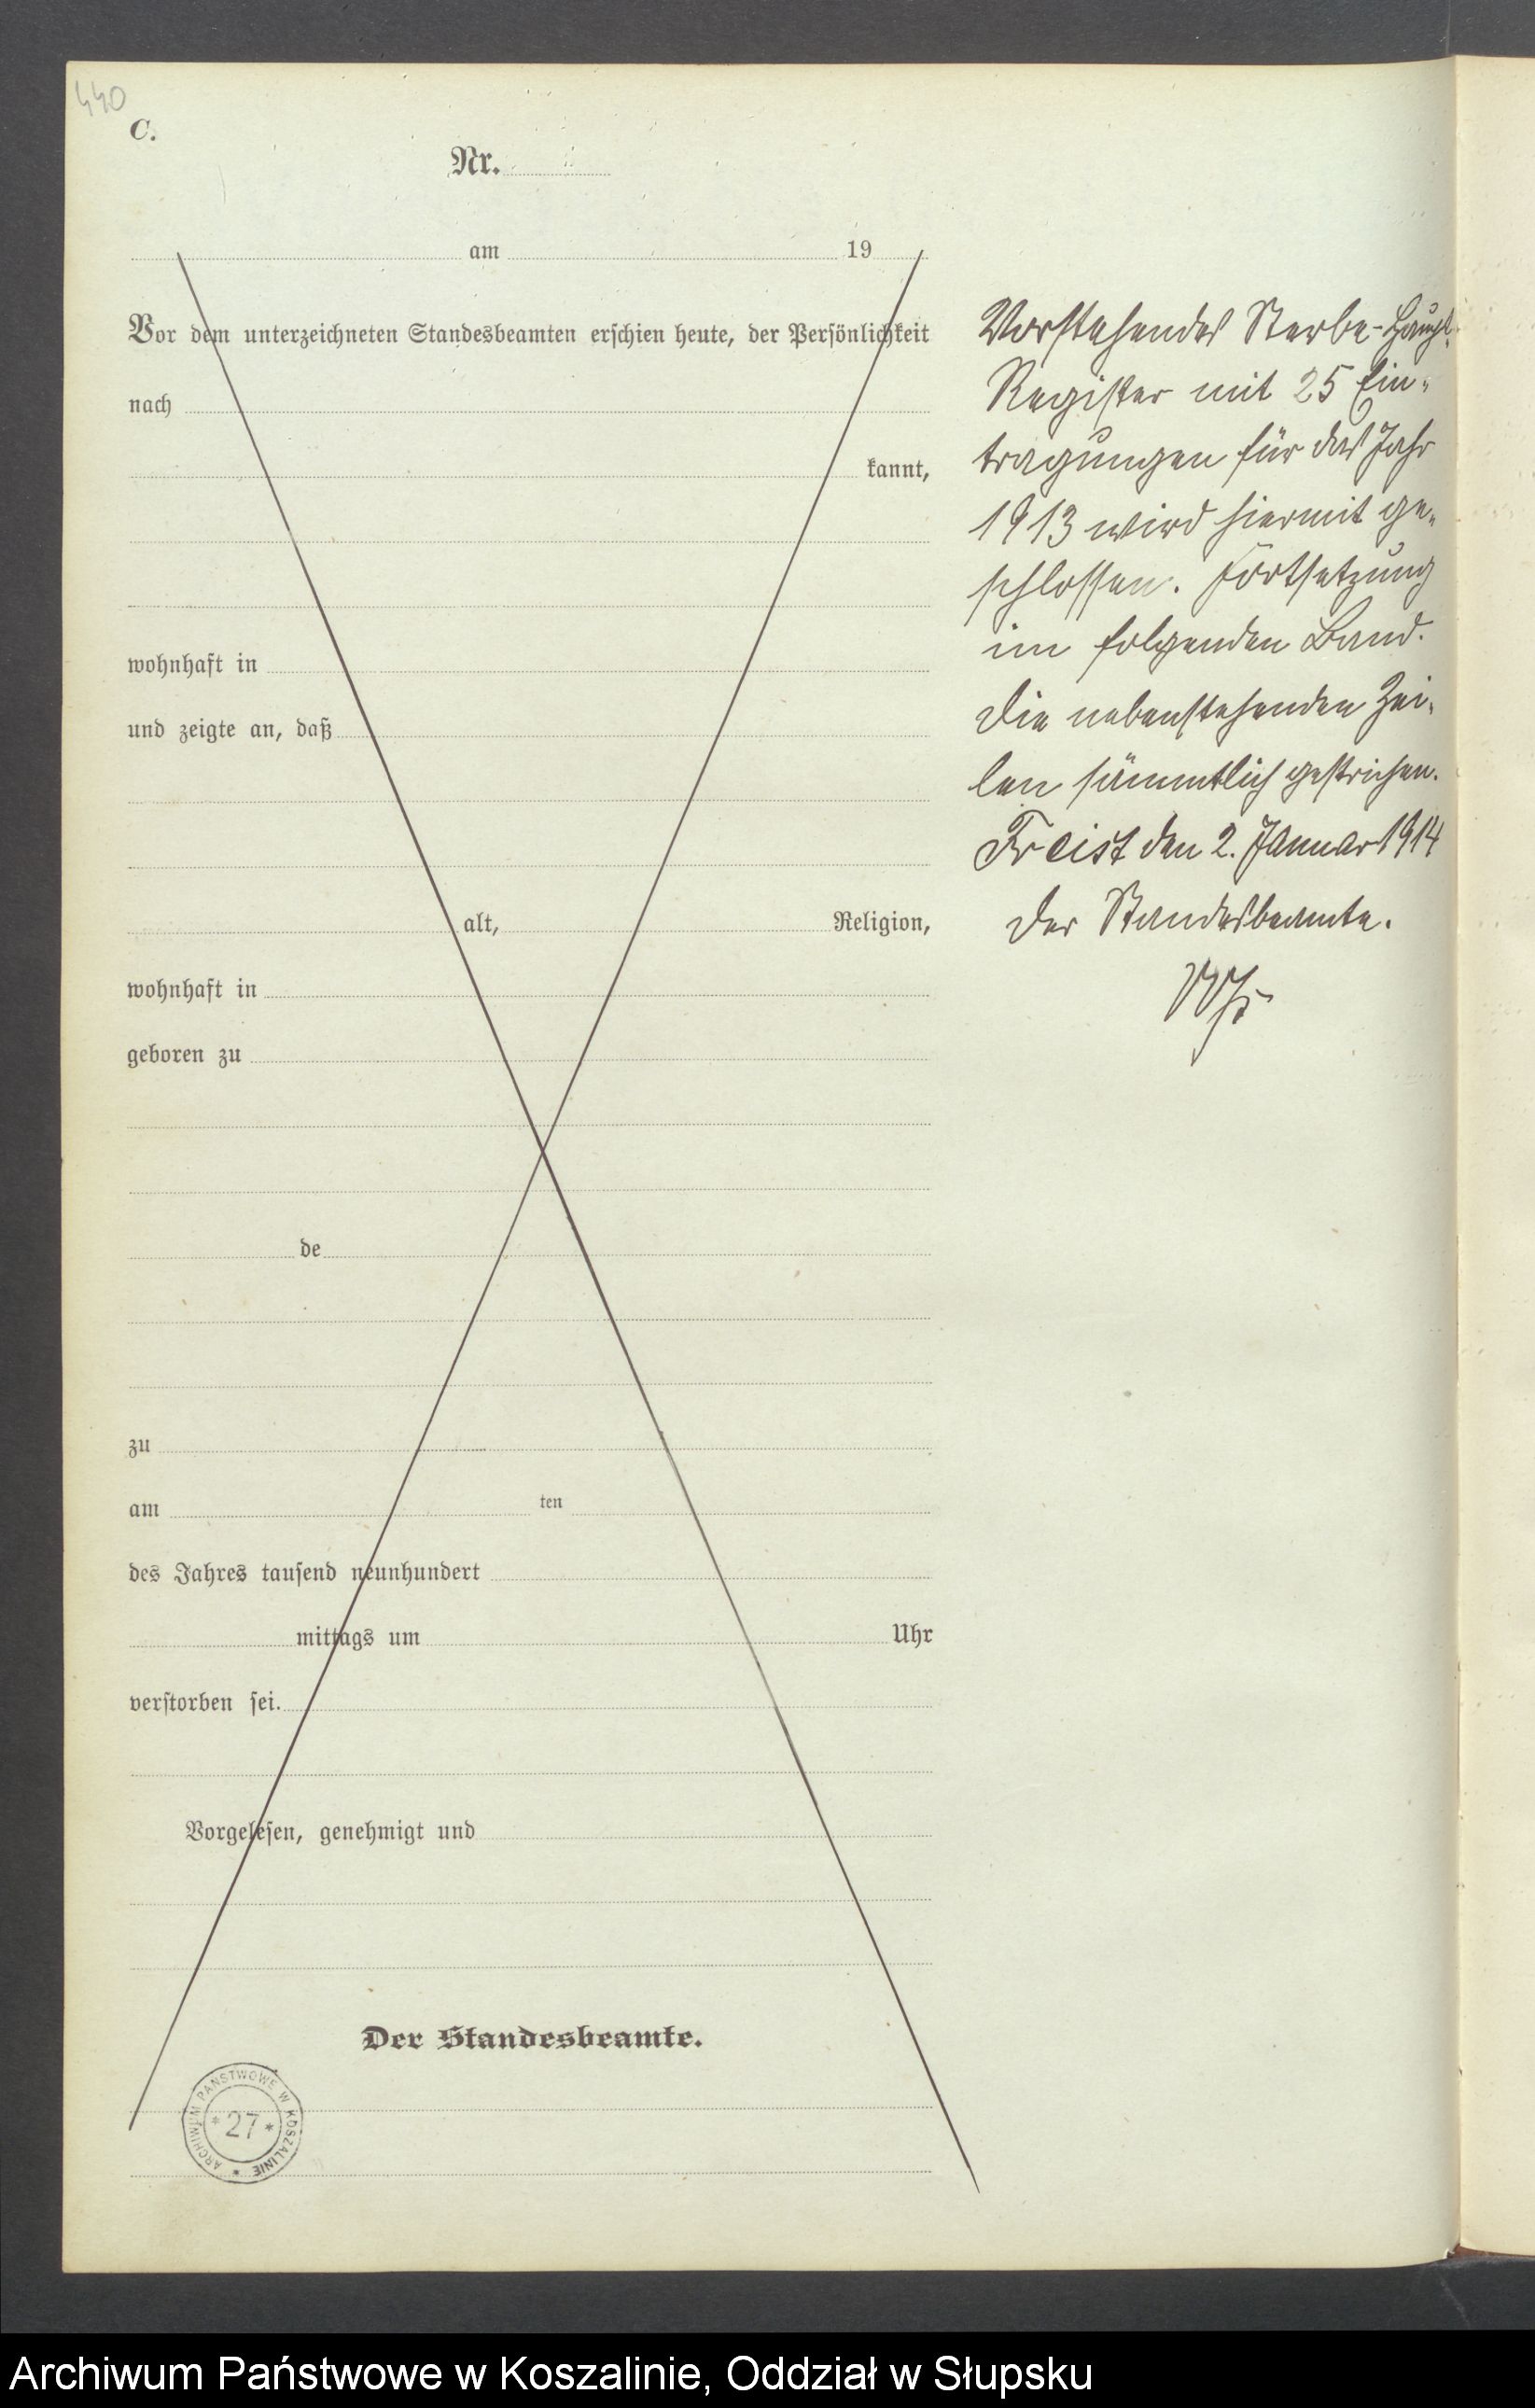 440
C.
Nr.
am 19
Vor dem unterzeichneten Standesbeamten erschien heute, der Persönlichkeit
nach
kannt,
wohnhaft in
und zeigte an, daß
alt, Religion,
wohnhaft in
geboren zu
de
zu
am ten
des Jahres tausend neunhundert
mittags um Uhr
verstorben sei.
Vorgelesen, genehmigt und
Der Standesbeamte.
Vorstehendes Sterbe-Haupt-
Register mit 25 Ein-
tragungen für das Jahr
1913 wird hiermit ge-
schlossen. Fortsetzung
im folgenden Band.
Die nebenstehenden Zei-
len sämmtlich gestrichen.
Freist den 2. Januar 1914
Der Standesbeamte.
ARCHIWUM PAŃSTWOWE W KOSZALINIE
* 27 *
Archiwum Państwowe w Koszalinie, Oddział w Słupsku